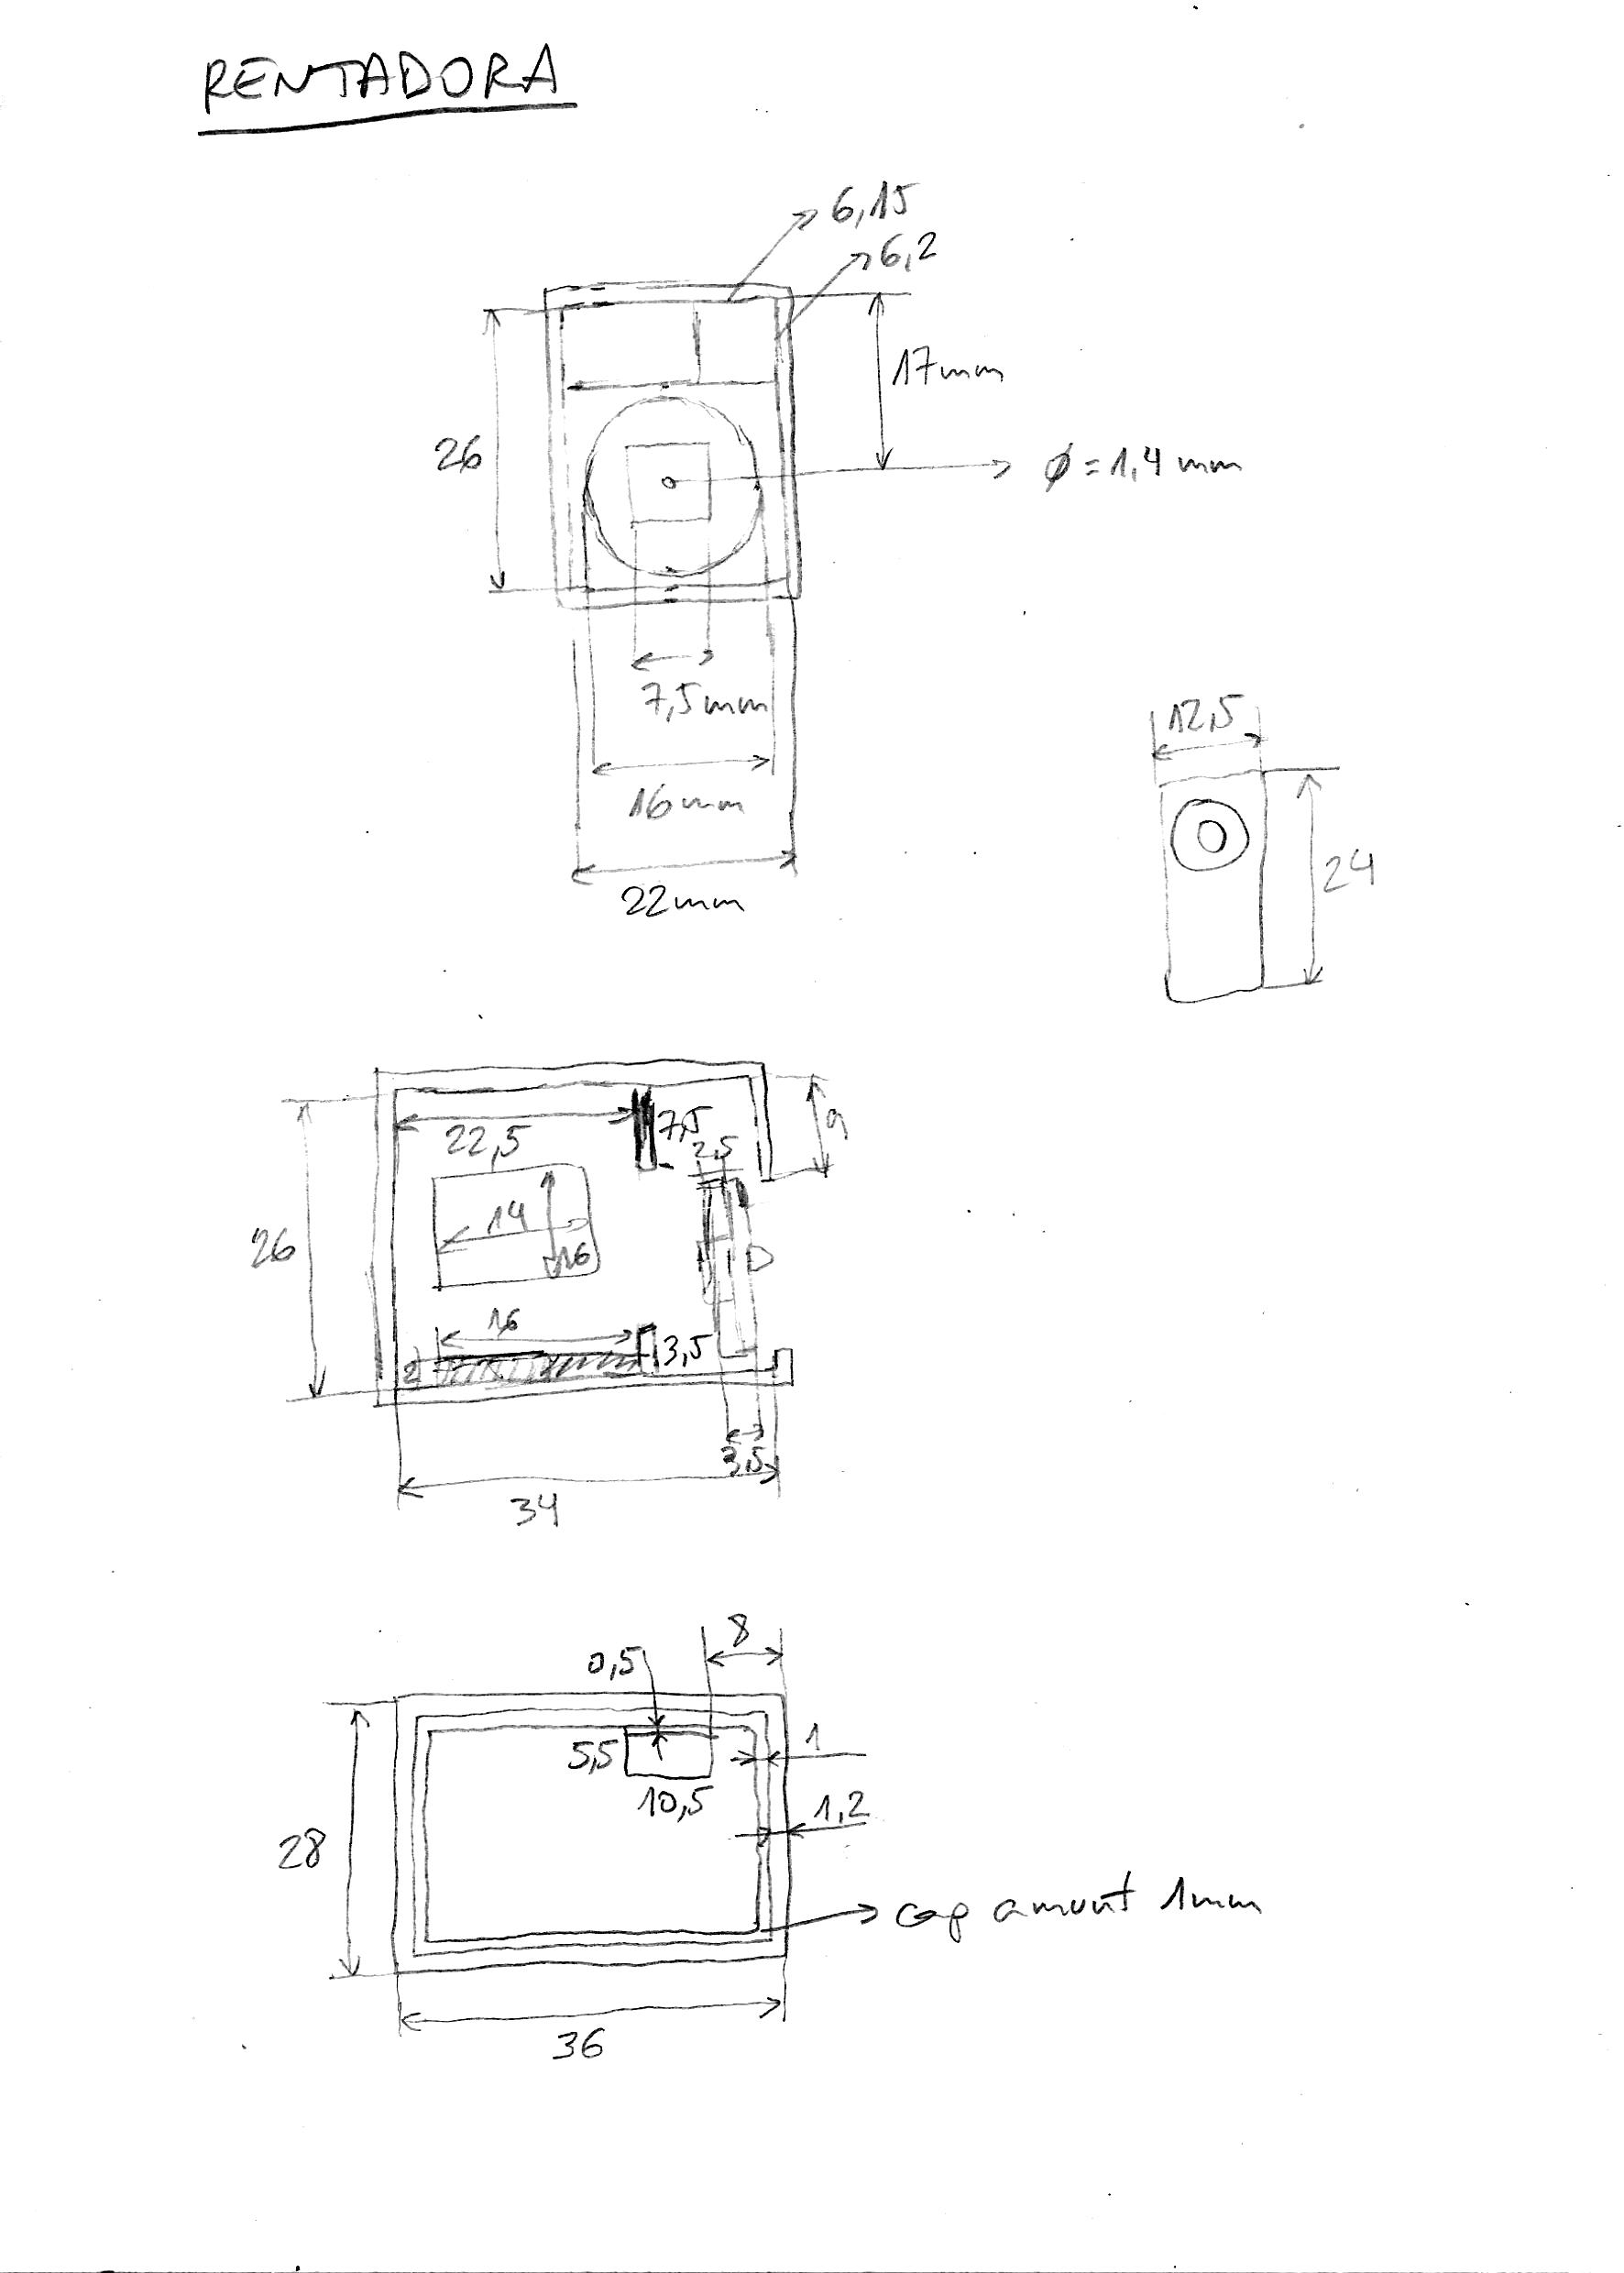 RENTADORA
6,15
6,2
17mm
26
Ø=1,4 mm
7,5mm
16mm
22mm
12,5
24
22,5
7,5
2,5
9
14
16
26
16
2
3,5
3,5
34
8
0,5
5,5
10,5
1
1,2
28
cap amunt 1mm
36